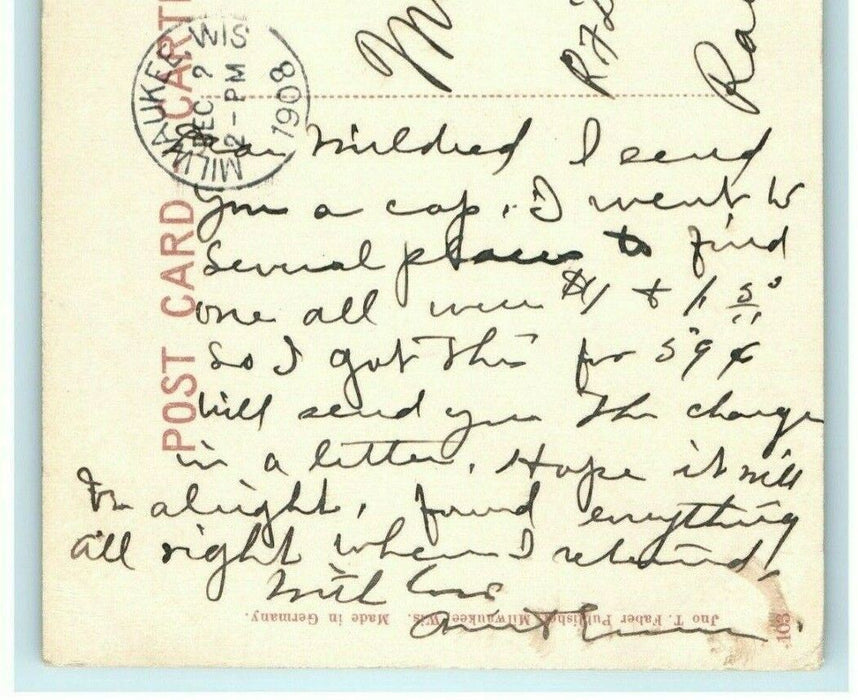 M
RFD
Ra
MILWAUKEE WIS
DEC ?
2-PM
1908
POST CARD
Dear Mildred I send
you a cap. I went to
several places to find
one all were $1 & 1.50
So I got this for 59¢
will send you the change
in a letter. Hope it will
be alright, found everything
all right when I returned,
With love
Aunt
Jno T. Faber Publisher, Milwaukee, Wis. Made in Germany.
105